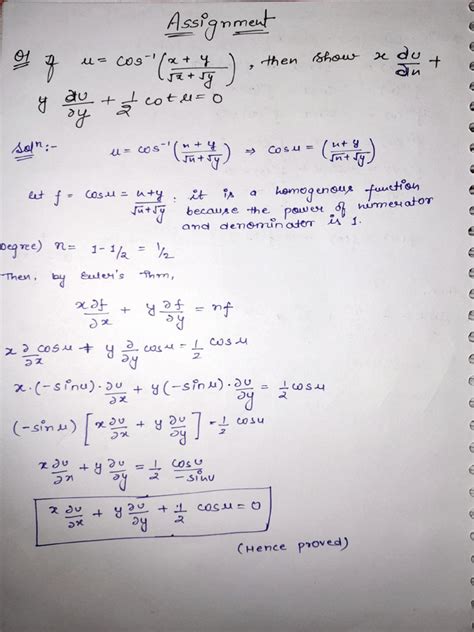 Assignment
Q1 If u = cos⁻¹(x + y / √x + √y), then show x du/dx +
y ∂u/∂y + 1/2 cot u = 0
Solⁿ:- u = cos⁻¹(x + y / √x + √y) ⇒ cosu = (x + y / √x + √y)
let f = cosu = x + y / √x + √y . it is a homogenous function
because the power of numerator
and denominator is 1.
Degree) n = 1 - 1/2 = 1/2
Then, by Euler's Thm,
x ∂f/∂x + y ∂f/∂y = nf
x ∂/∂x cosu + y ∂/∂y cosu = 1/2 cosu
x·(-sinu)·∂u/∂x + y(-sinu)·∂u/∂y = 1/2 cosu
(-sinu) [x ∂u/∂x + y ∂u/∂y] = 1/2 cosu
x ∂u/∂x + y ∂u/∂y = 1/2 cosu/-sinu
x ∂u/∂x + y ∂u/∂y + 1/2 cosu = 0
(Hence proved)